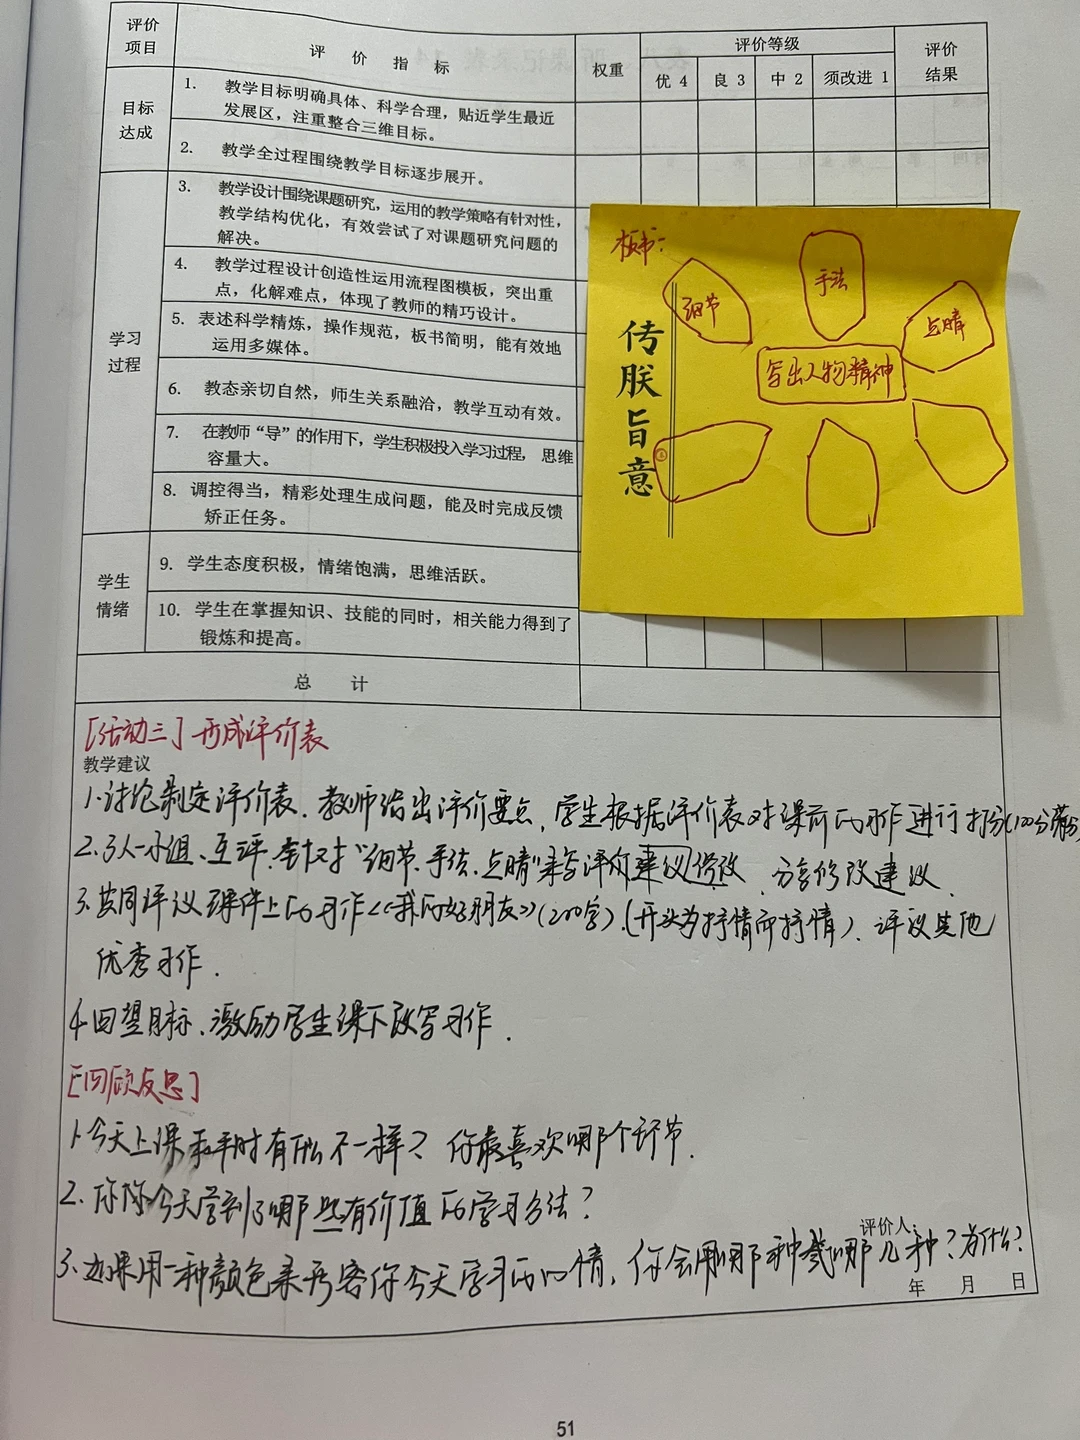 评价项目
评价指标
权重
评价等级
优 4
良 3
中 2
须改进 1
评价结果
目标达成
1. 教学目标明确具体、科学合理，贴近学生最近
发展区，注重整合三维目标。
2. 教学全过程围绕教学目标逐步展开。
学习过程
3. 教学设计围绕课题研究，运用的教学策略有针对性，
教学结构优化，有效尝试了对课题研究问题的
解决。
4. 教学过程设计创造性运用流程图模板，突出重
点，化解难点，体现了教师的精巧设计。
5. 表述科学精炼，操作规范，板书简明，能有效地
运用多媒体。
6. 教态亲切自然，师生关系融洽，教学互动有效。
7. 在教师“导”的作用下，学生积极投入学习过程， 思维
容量大。
8. 调控得当，精彩处理生成问题，能及时完成反馈
矫正任务。
学生情绪
9. 学生态度积极，情绪饱满，思维活跃。
10. 学生在掌握知识、技能的同时，相关能力得到了
锻炼和提高。
总 计
板书：
细节
手法
点睛
写出人物精神
传朕旨意
[活动三] 形成评价表
教学建议
1.讨论制定评价表. 教师给出评价要点, 学生根据评价表对课前的习作进行打分(100分满分)
2.3人一小组、互评.针对“细节、手法、点睛”来写评价建议修改. 分享修改建议.
3.共同评议课件上的习作《我的好朋友》(200字).(开头为抒情而抒情). 评议其他
优秀习作.
4.回望目标、激励学生课下改写习作.
[回顾反思]
1.今天上课和平时有什么不一样? 你最喜欢哪个环节.
2.你今天学到了哪些有价值的学习方法?
3.如果用一种颜色来形容你今天学习的心情, 你会用哪种或哪几种? 为什么?
评价人：
年 月 日
51